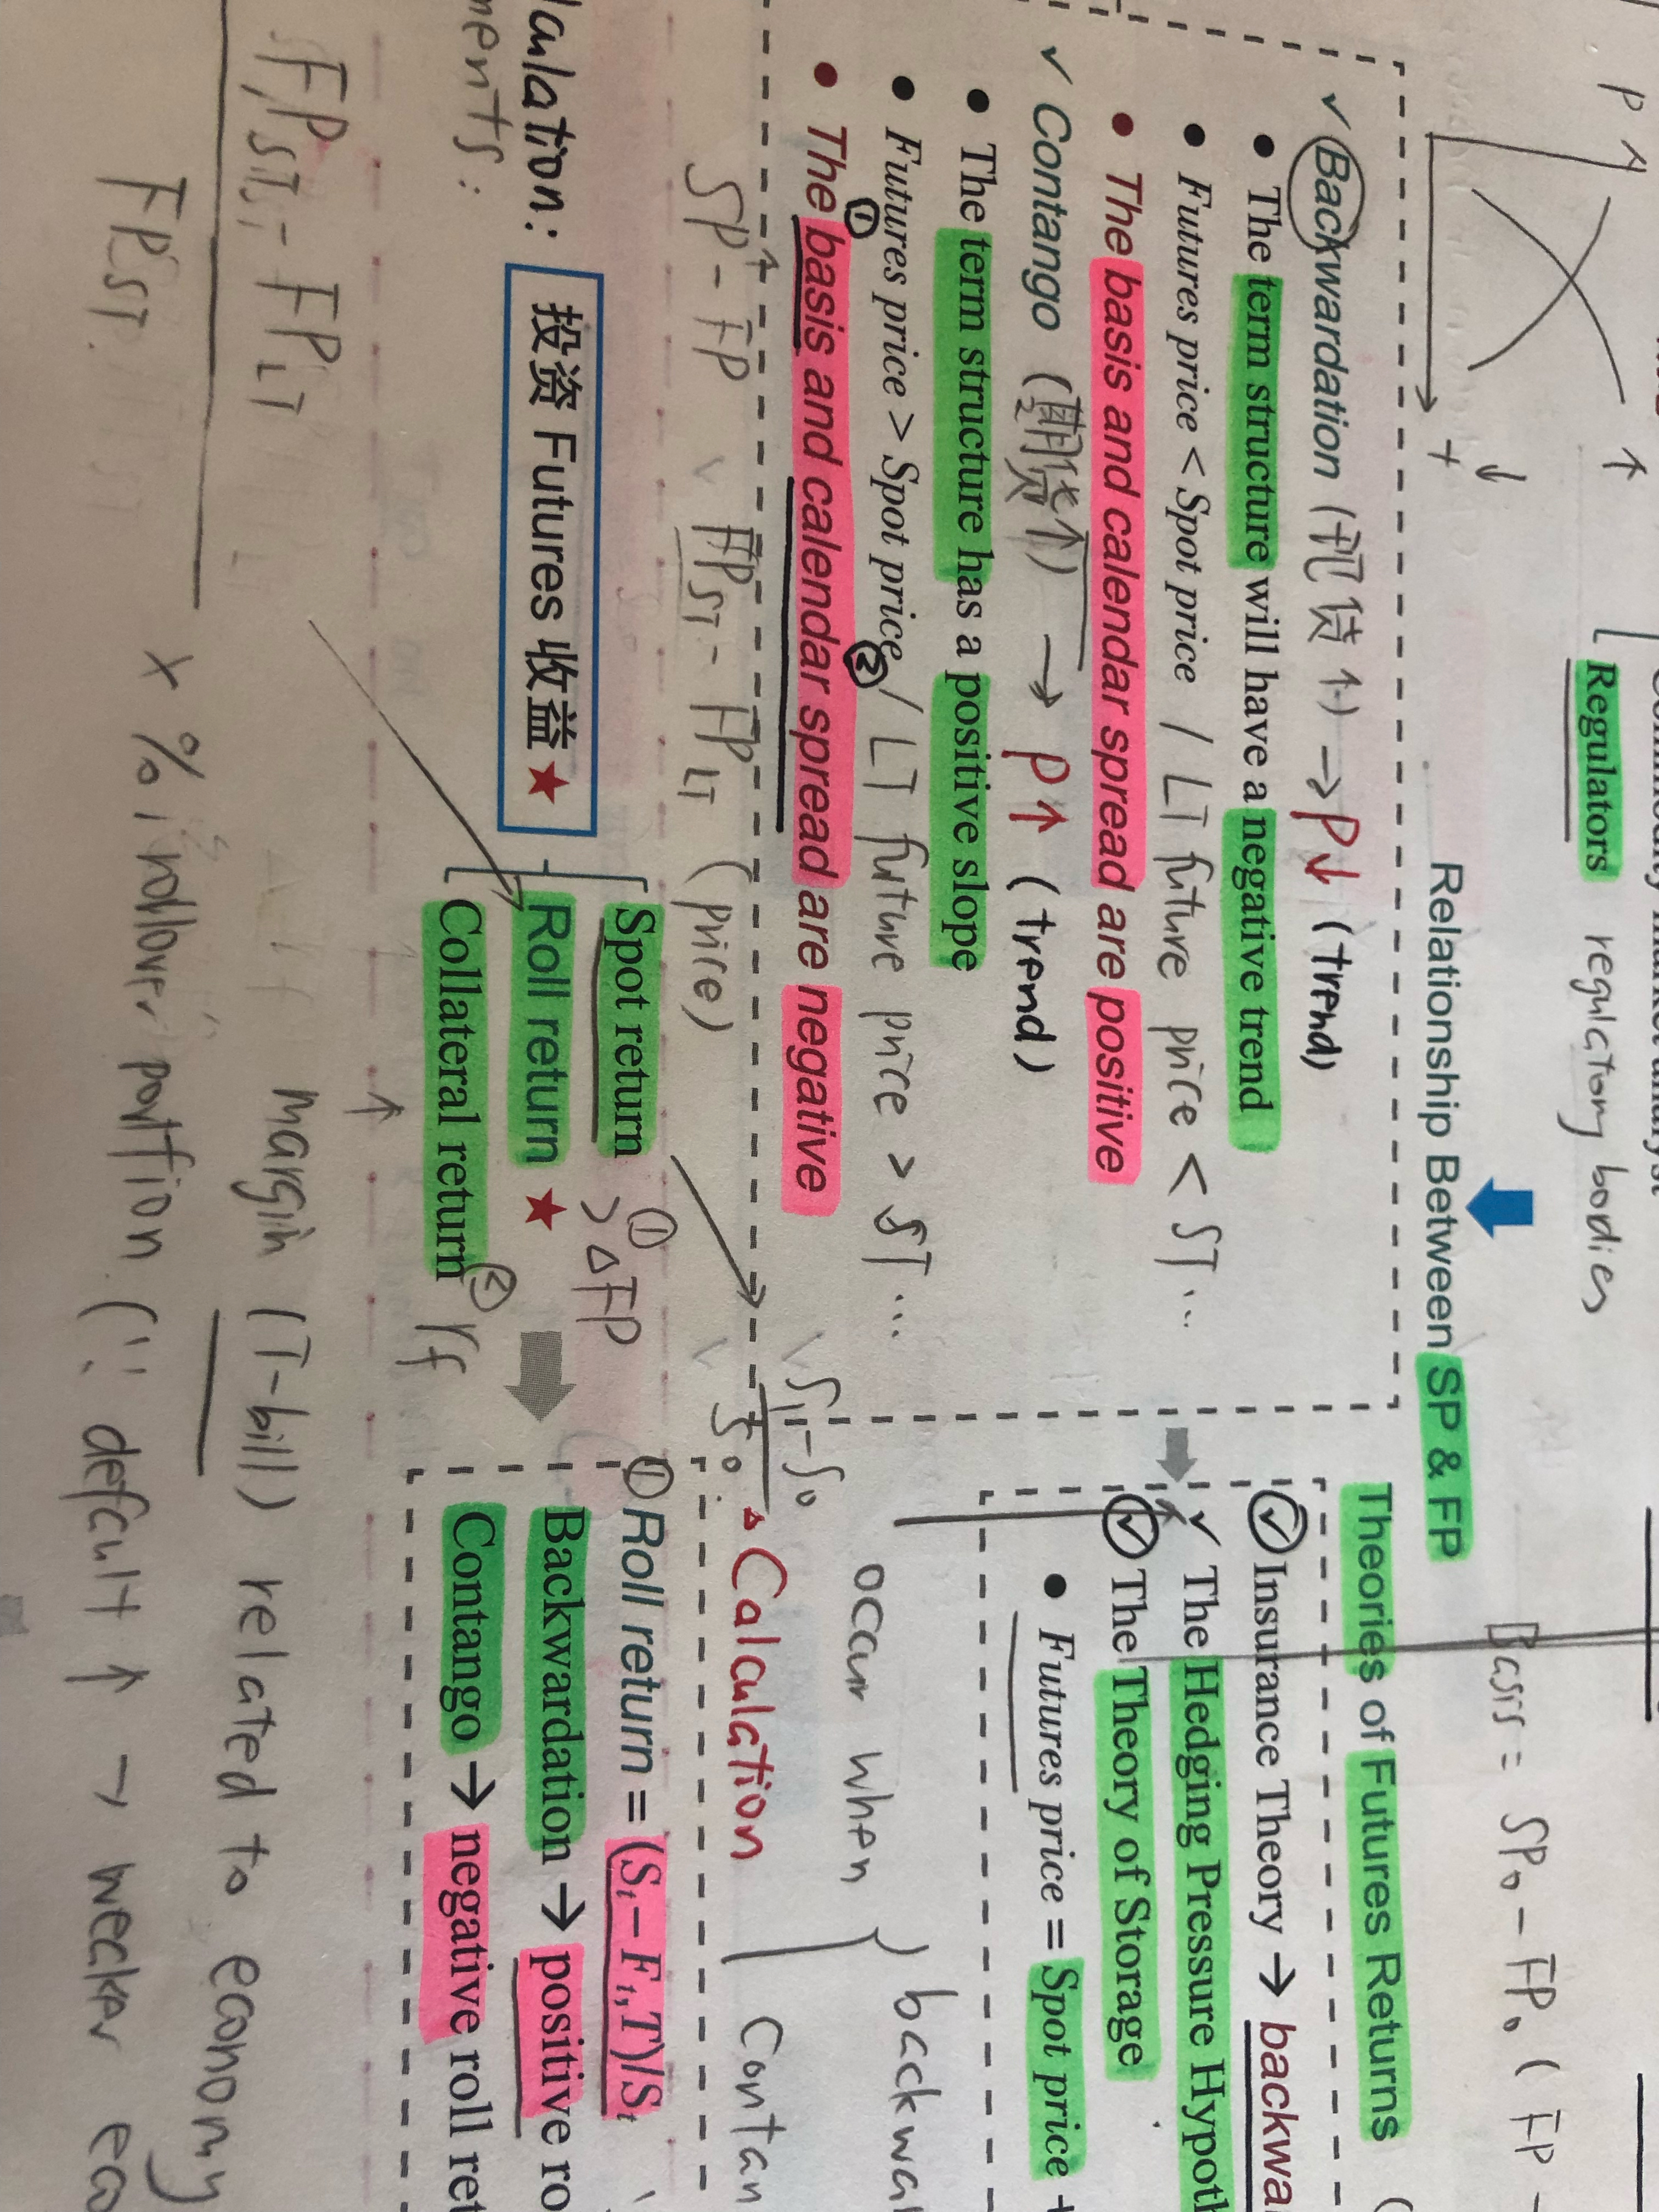 P
↑
↓
+
Regulators regulatory bodies
Relationship Between SP & FP
✓ Backwardation (现货↑) → P↓ (trend)
• The term structure will have a negative trend
• Futures price < Spot price / LT future price < ST ..
• The basis and calendar spread are positive
✓ Contango (期货↑) → P↑ (trend)
• The term structure has a positive slope
• Futures price > Spot price / LT future price > ST ...
• The ① basis and calendar spread ② are negative
SP - FP FP_ST - FP_LT (price)
Basis = SP₀ - FP₀ (FP -
Theories of Futures Returns (
✓ Insurance Theory → backwa
✓ The Hedging Pressure Hypoth
✓ The Theory of Storage
• Futures price = Spot price +
occur when } backwa
Contan
S₁-S₀
S₀
Calculation
culation: 投资 Futures 收益 ★
ments:
Spot return ① > △FP
Roll return ★
Collateral return ② rf
① Roll return = (St – Ft,T)/St
Backwardation → positive ro
Contango → negative roll ret
margin (T-bill) related to economy
FP_ST - FP_LT
FP_ST
x % rollover portfion (∵ default ↑ → wecker eco